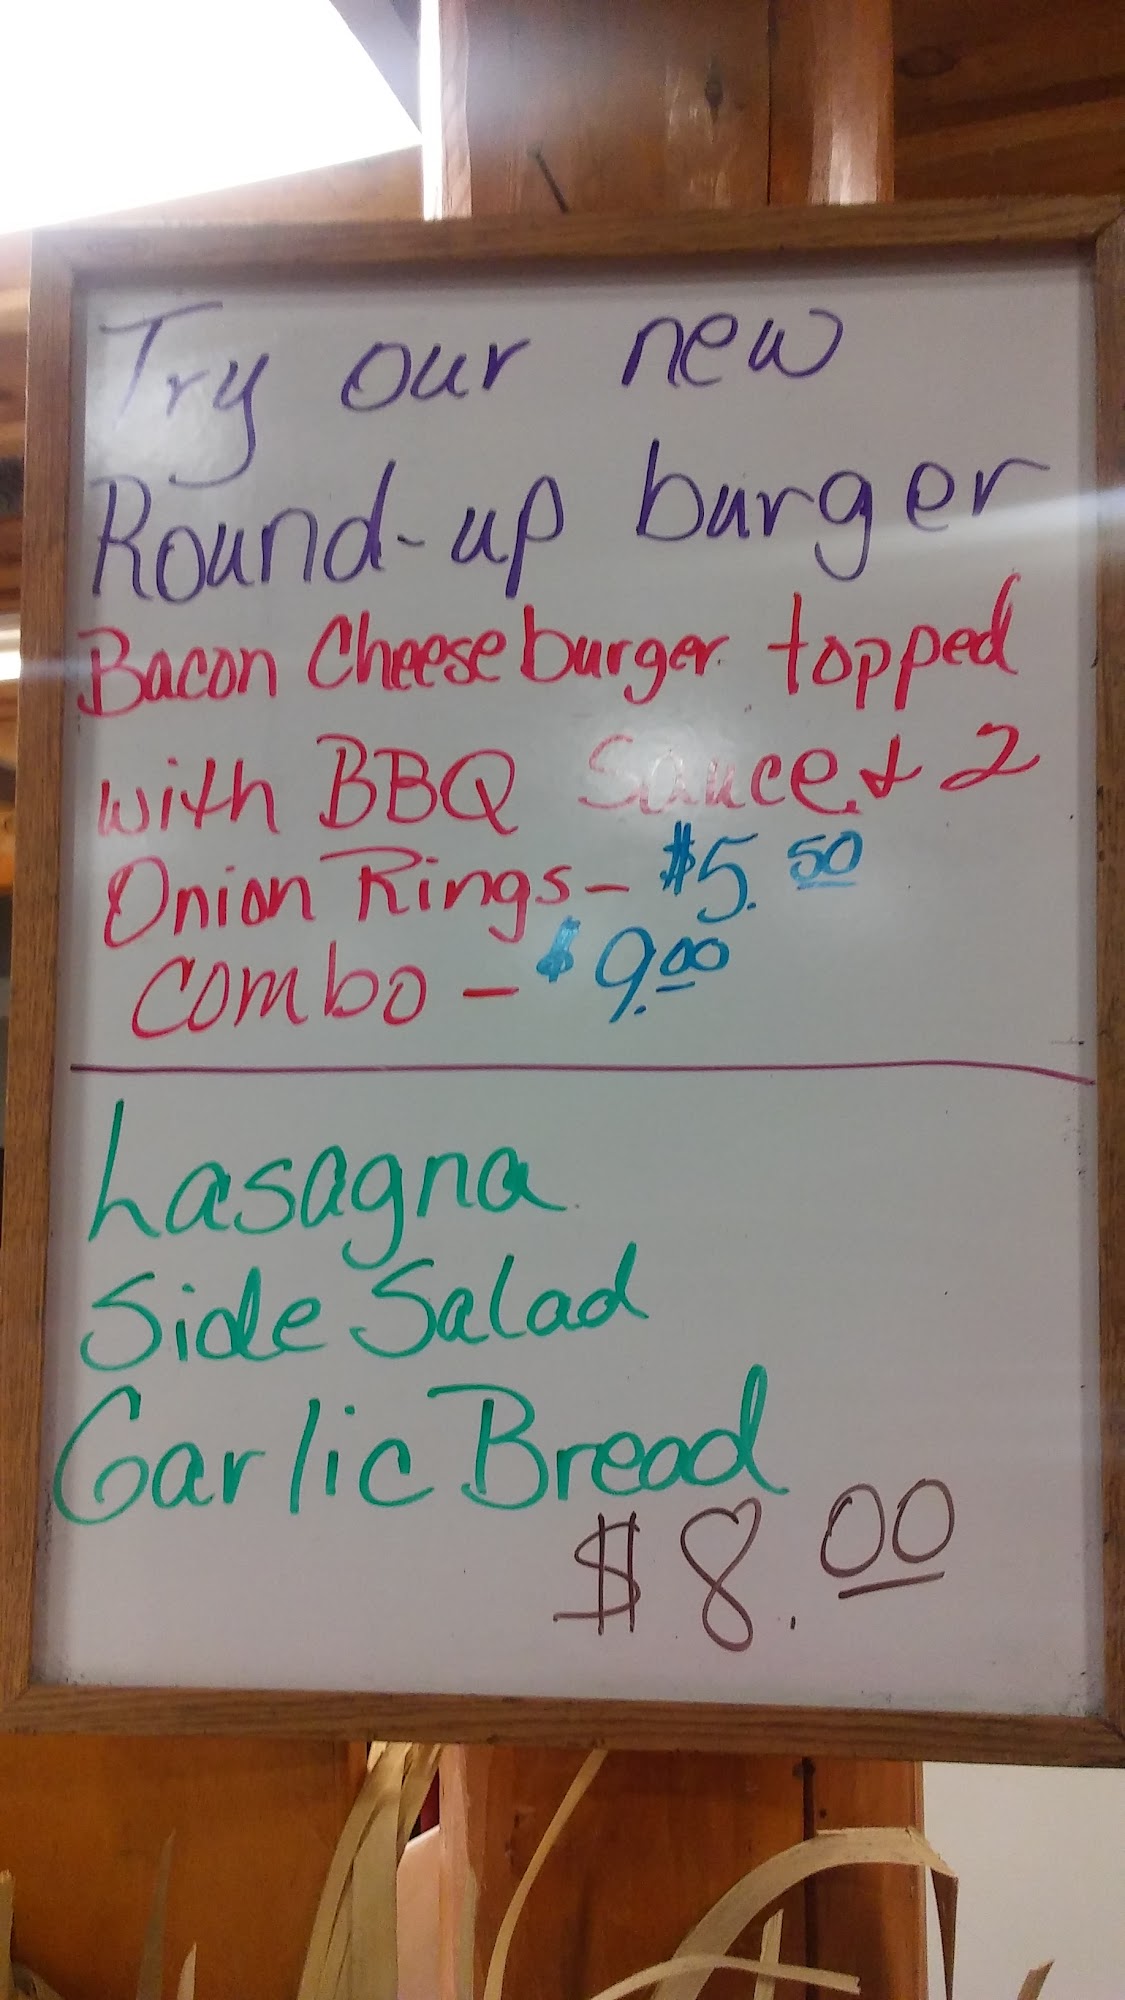 Try our new
Round-up burger
Bacon Cheese burger topped
with BBQ Sauce & 2
Onion Rings - $5.50
combo - $9.00
Lasagna
Side Salad
Garlic Bread
$8.00